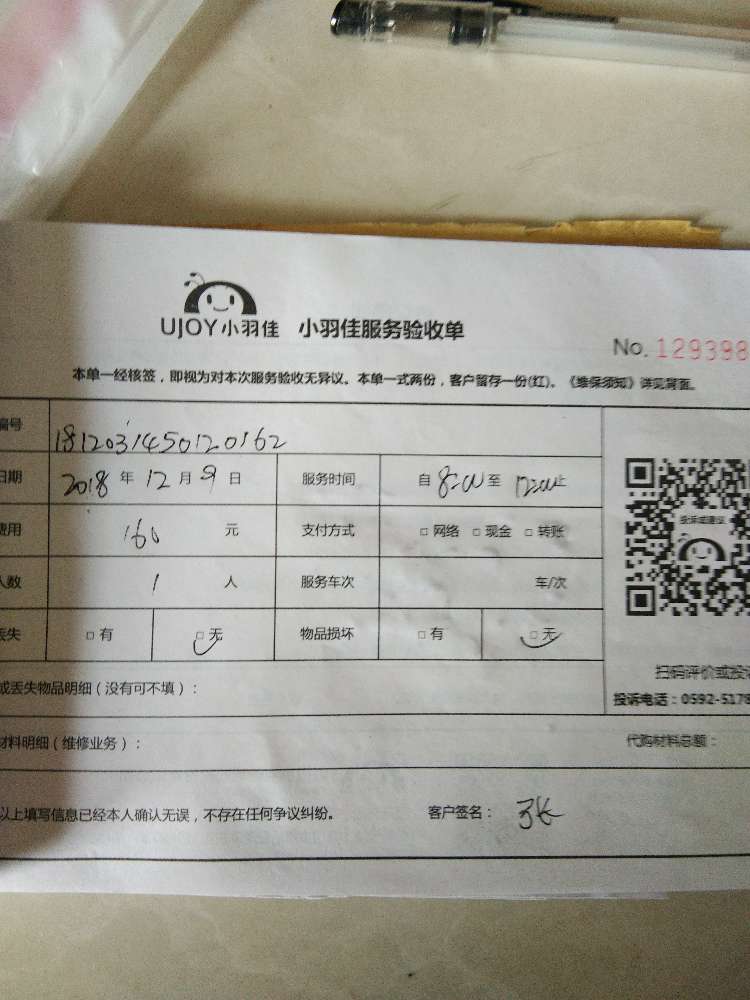 UJOY小羽佳 小羽佳服务验收单
No. 129398
本单一经核签，即视为对本次服务验收无异议。本单一式两份，客户留存一份(红)。《维保须知》详见背面。
编号 1812031450120162
日期 2018 年 12 月 9 日 服务时间 自 8:00 至 12:00 止
费用 160 元 支付方式 □ 网络 □ 现金 □ 转账
人数 1 人 服务车次 车/次
丢失 □ 有 □ 无 物品损坏 □ 有 □ 无
投诉或建议
扫码评价或投
或丢失物品明细（没有可不填）：
投诉电话：0592-5178
材料明细（维修业务）： 代购材料总额：
以上填写信息已经本人确认无误，不存在任何争议纠纷。 客户签名： 张